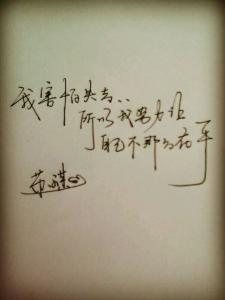 我害怕失去..
所以我努力让
自己不那么在乎